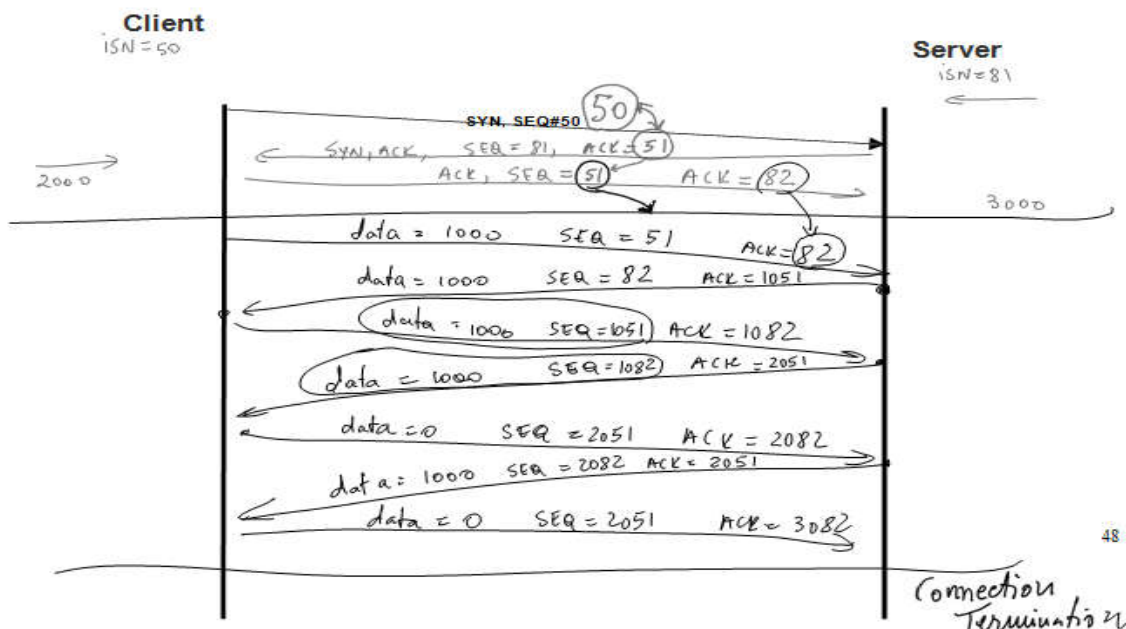 Client
ISN=50
Server
ISN=81
SYN, SEQ#50 50
SYN, ACK, SEQ = 81, ACK=51
2000
ACK, SEQ = 51 ACK=82
3000
data = 1000 SEQ = 51 ACK=82
data = 1000 SEQ = 82 ACK=1051
data = 1000 SEQ=1051 ACK=1082
data = 1000 SEQ=1082 ACK=2051
data=0 SEQ=2051 ACK=2082
data = 1000 SEQ=2082 ACK=2051
data = 0 SEQ=2051 ACK=3082
48
Connection
Termination